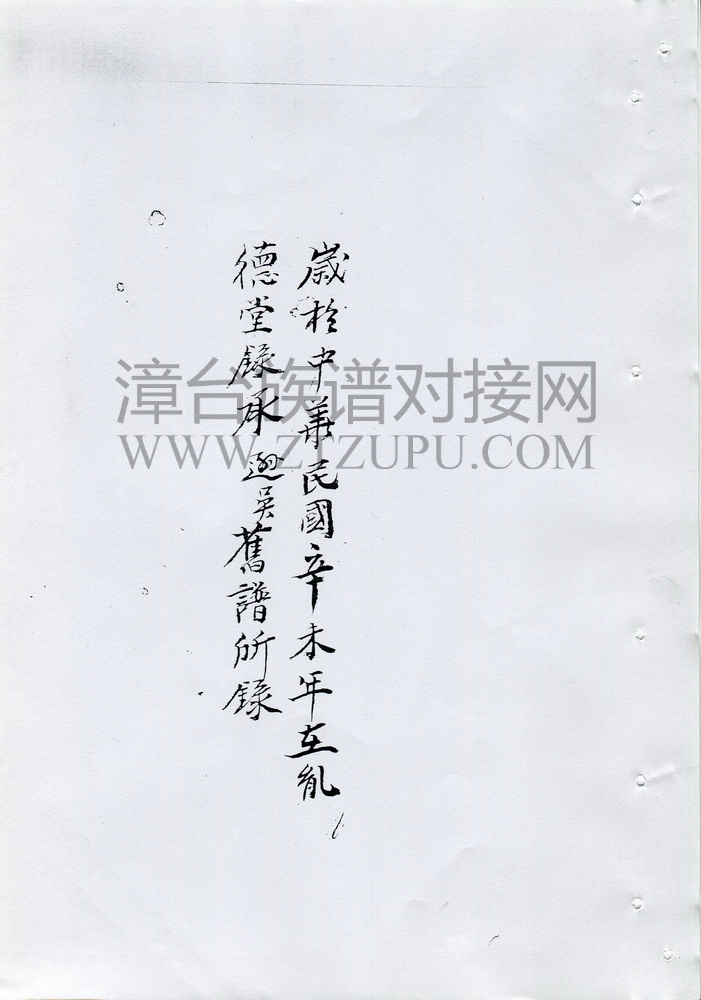 歲於中華民國辛未年在胤
德堂錄承遜吳舊譜所錄
漳台族谱对接网
WWW.ZTZUPU.COM